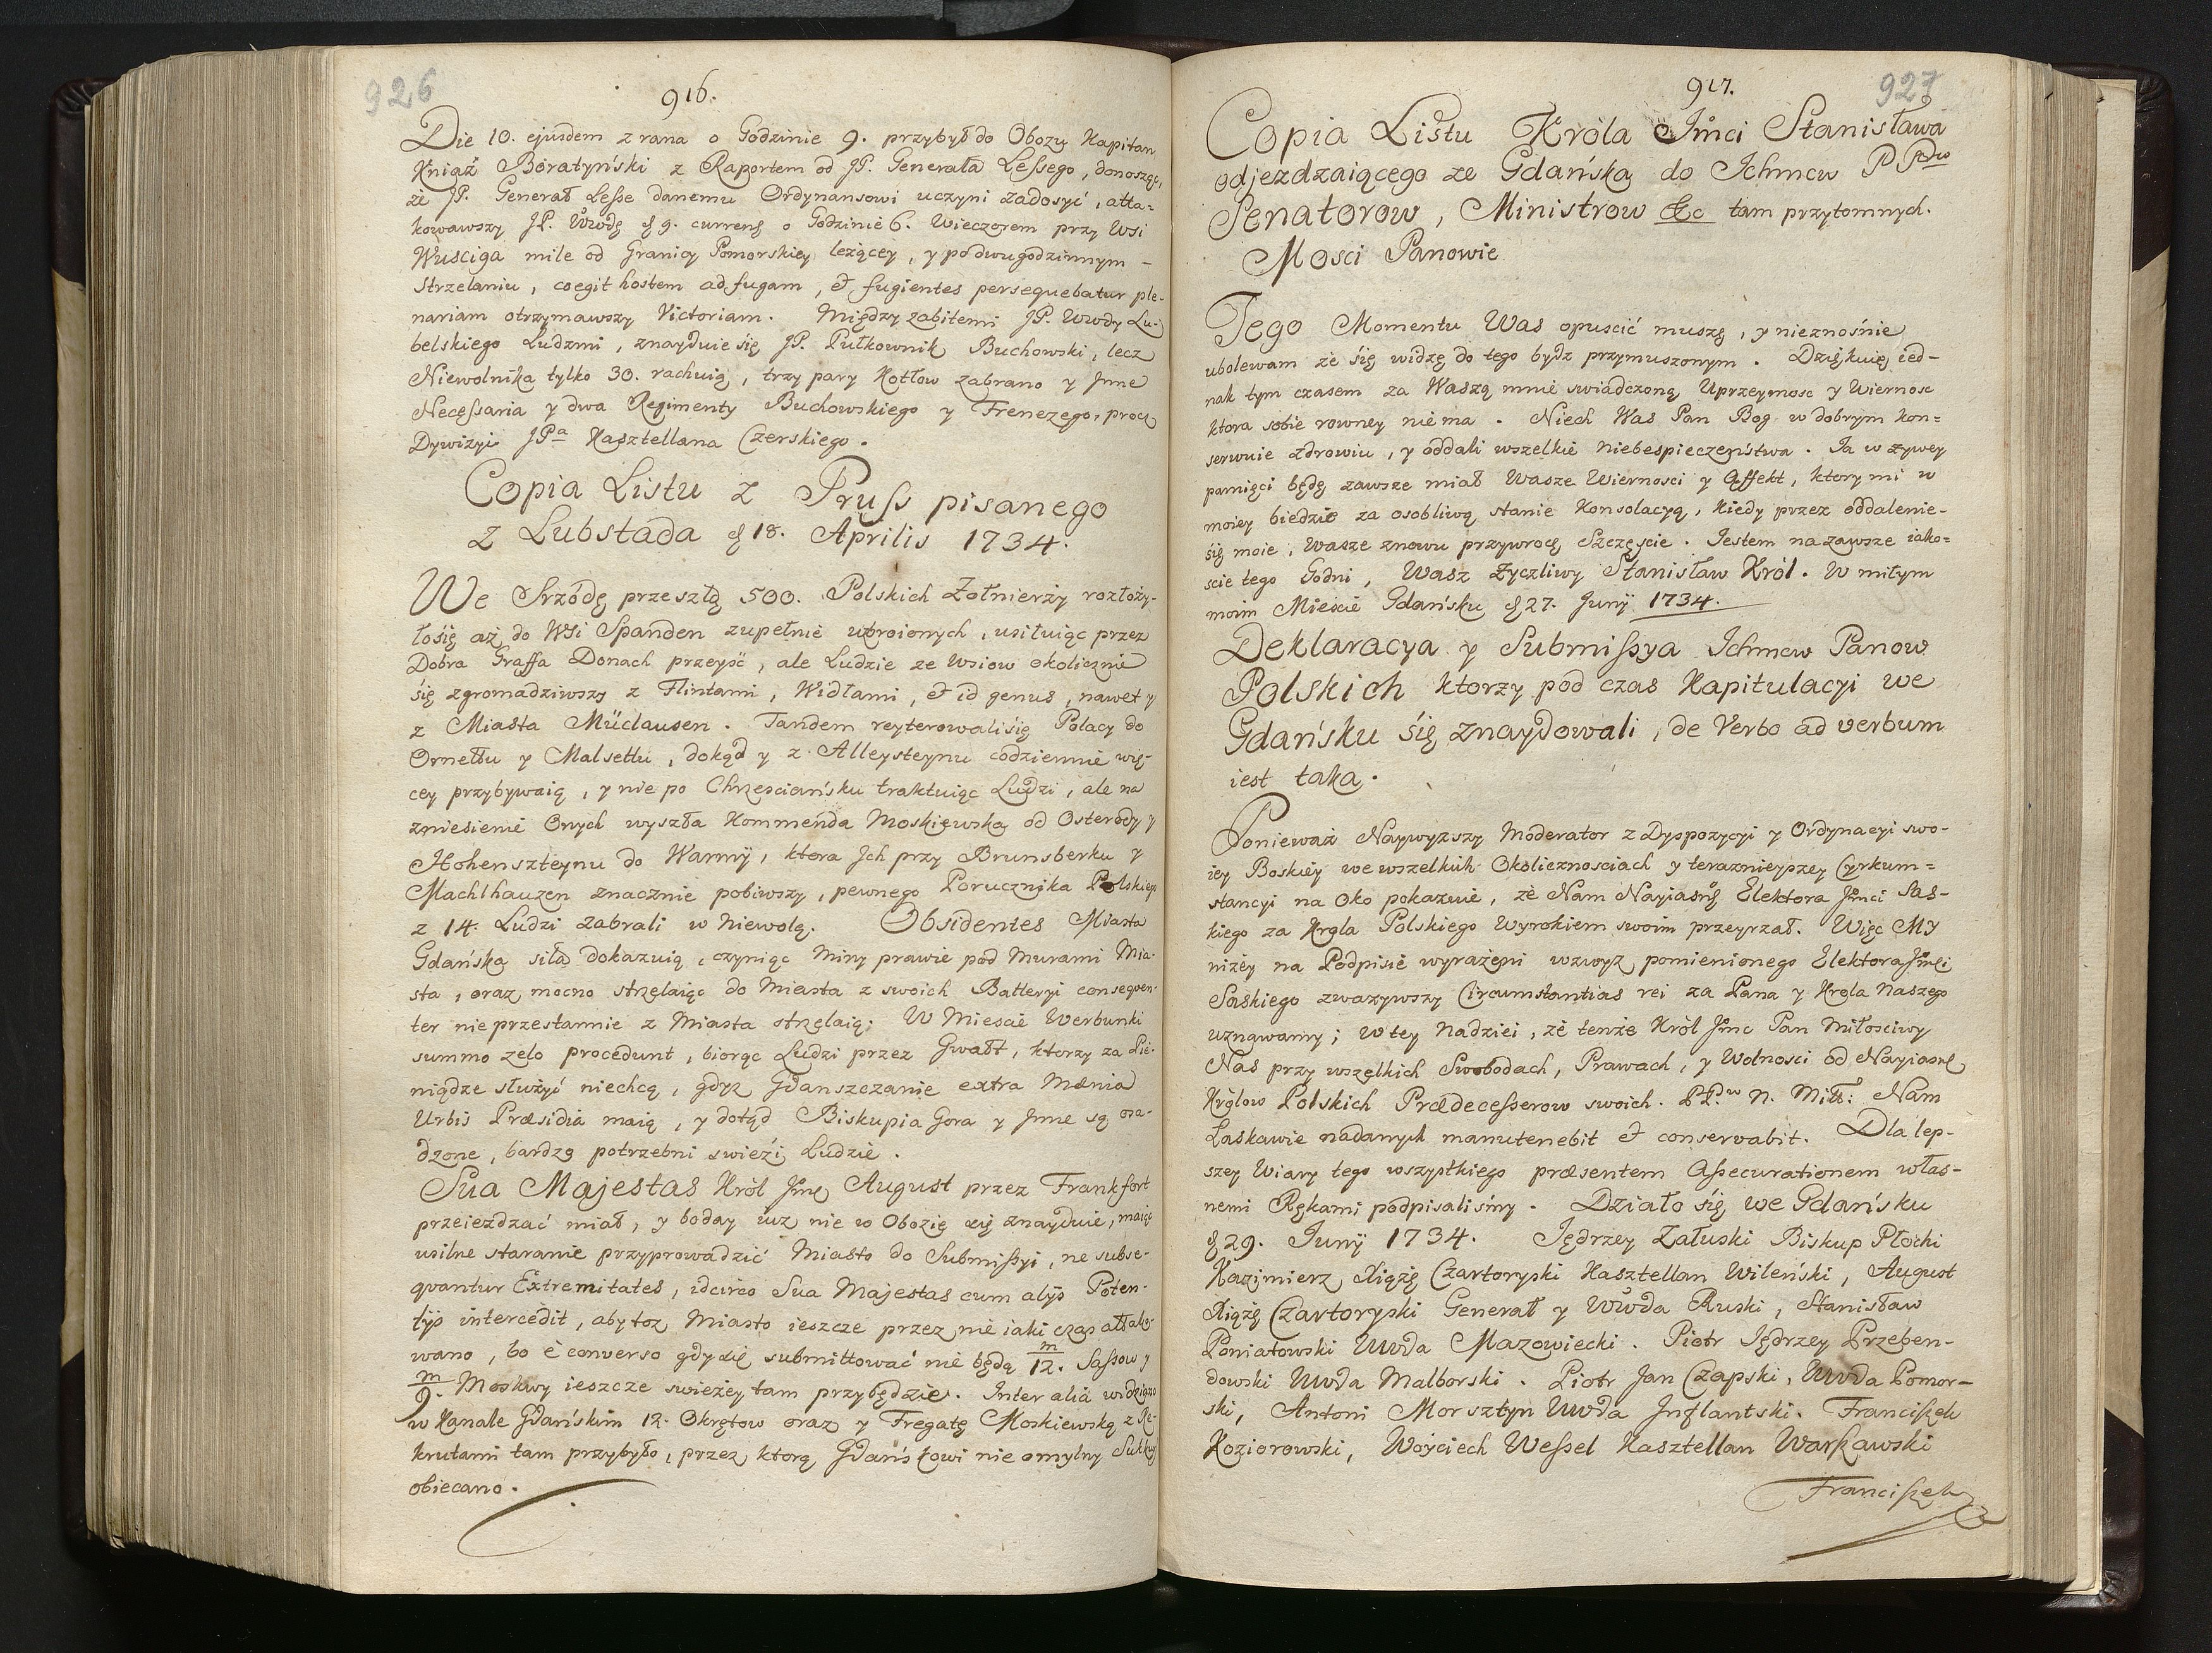 926
916.
Die 10. ejusdem z rana o Godzinie 9. przybył do Obozu Kapitan
Kniaź Boratyński z Raportem od JP. Generała Lessego, donosząc,
że JP. Generał Lesse danemu Ordynansowi uczyni zadosyć, atta-
kowawszy JP. Wwodę 9. currens o Godzinie 6. Wieczorem przy Wsi
Wusciga mile od Granicy Pomorskiey leżącey, y po dwugodzinnym -
strzelaniu, coegit hostem ad fugam, et fugientes persequebatur ple-
nariam otrzymawszy Victoriam. Między zabitemi JP. Wwdy Lu-
belskiego Ludzmi, znayduie się JP. Pułkownik Buchowski, lecz
Niewolnika tylko 30. rachuią, trzy pary Kotłow zabrano y Jnne
Necessaria y dwa Regimenty Buchowskiego y Frenezego, procz
Dywizyi JPa Kasztellana Czerskiego.
Copia Listu z Pruss pisanego
z Lubstada 18. Aprilis 1734.
We Srzódę przeszłą 500. Polskich Żołnierzy rozłoży-
łośię aż do Wsi Spanden zupełnie uzbroionych, usiłuiąc przez
Dobra Graffa Donach przeyść, ale Ludzie ze Wsiow okolicznie
się zgromadziwszy z Flintami, Widłami, et id genus, nawet y
z Miasta Müclausen. Tandem reyterowaliśię Polacy do
Ornettu y Malsettu, dokąd y z Alleysteynu codziennie wię-
cey przybywaią, y nie po Chrzesciańsku traktuiąc Ludzi, ale na
zniesienie Onych wyszła Kommenda Moskiewska od Osterody y
Hohenszteynu do Warmij, ktora Jch przy Brunsberku y
Machlhauzen znacznie pobiwszy, pewnego Porucznika Polskiego
z 14. Ludzi zabrali w niewolą. Obsidentes Miasta
Gdańska siła dokazuią, czyniąc Miny prawie pod Murami Mia-
sta, oraz mocno strzelaiąc do Miasta z swoich Batteryi conseqven-
ter nie przestannie z Miasta strzelaią; W Miescie Werbunki
summo zelo procedunt, biorąc Ludzi przez Gwałt, ktorzy za Pie-
niądze służyć niechcą, gdyż Gdanszczanie extra Mænia
Urbis Præsidia maią, y dotąd Biskupia Gora y Jnne są osa-
dzone, bardzo potrzebni swieżi Ludzie.
Sua Majestas Król Jmć August przez Frankfort
przeiezdzać miał, y boday iuz nie w Obozie się znayduie, maiąc
usilne staranie przyprowadzić Miasto do Submissyi, ne subse-
qvantur Extremitates, idcirco Sua Majestas cum alijs Poten-
tijs intercedit, aby toz Miasto ieszcze przez nie iaki czas attako-
wano, bo è converso gdy się submittować nie będą m/12. Sassow y
m/9. Moskwy ieszcze swieżey tam przybędzie. Inter alia widziano
w Kanale Gdańskim 12. Okrętow oraz y Fregatę Moskiewską z Re-
krutami tam przybyło, przez ktorą Gdańskowi nie omylny Sukkurs
obiecano.
927
917.
Copia Listu Króla Jmci Stanisława
odjezdzaiącego ze Gdańska do Ichmcw P Pnw
Senatorow, Ministrow &c tam przytomnych.
Mosci Panowie
Tego Momentu Was opuscić muszę, y nieznośnie
ubolewam że się widzę do tego bydz przymuszonym. Dziękuię ied-
nak tym czasem za Waszą mnie swiadczoną Uprzeymosc y Wiernosc
ktora sobie rowney nie ma. Niech Was Pan Bog w dobrym kon=
serwuie zdrowiu, y oddali wszelkie niebespieczeństwa. Ja w zywey
pamięci będę zawsze miał Wasze Wiernosci y Affekt, ktory mi w
moiey biedzie za osobliwą stanie Konsolacyą, kiedy przez oddalenie-
się moie, Wasze znowu przywrocę Szczęście. Jestem na zawsze iako=
scie tego Godni, Wasz Życzliwy Stanisław Król. W miłym
moim Mieście Gdańsku 27. Junij 1734.
Deklaracya y Submissya Ichmcw Panow
Polskich ktorzy pod czas Kapitulacyi we
Gdańsku się znaydowali, de Verbo ad verbum
iest taka.
Ponieważ Naywyzszy Moderator z Dyspozycyi y Ordynacyi swo-
iey Boskiey we wszelkich Okolicznosciach y teraznieyszey Cyrkum=
stancyi na Oko pokazuie, że Nam Nayiasnś Elektora Jmci Sas-
kiego za Krola Polskiego Wyrokiem swoim przeyrzał. Więc MY
niżey na Podpisie wyrażeni wzwyz pomienionego Elektora Jmci
Saskiego zwazywszy Circumstantias rei za Pana y Krola Naszego
uznawamy; w tey Nadziei, że tenże Król Jmc Pan Miłosciwy
Nas przy wszelkich Swobodach, Prawach, y Wolnosci od Nayiasn
Królow Polskich Prædecesserow swoich. P.P.w N. Mitt: Nam
Łaskawie nadanych manutenebit et conservabit. Dla lep-
szey Wiary tego wszystkiego præsentem Assecurationem włas-
nemi Rękami podpisaliśmy. Działo się we Gdańsku
29. Junij 1734. Jędrzey Załuski Biskup Płocki
Kazimierz Xiąże Czartoryski Kasztellan Wileński, August
Xiąże Czartoryski Generał y Wwda Ruski, Stanisław
Poniatowski Wwda Mazowiecki. Piotr Jędrzey Przeben-
dowski Wwda Malborski. Piotr Jan Czapski, Wwda Pomor-
ski, Antoni Morsztyn Wwda Jnflantski. Franciszek
Koziorowski, Woyciech Wessel Kasztellan Warszawski
Franciszek